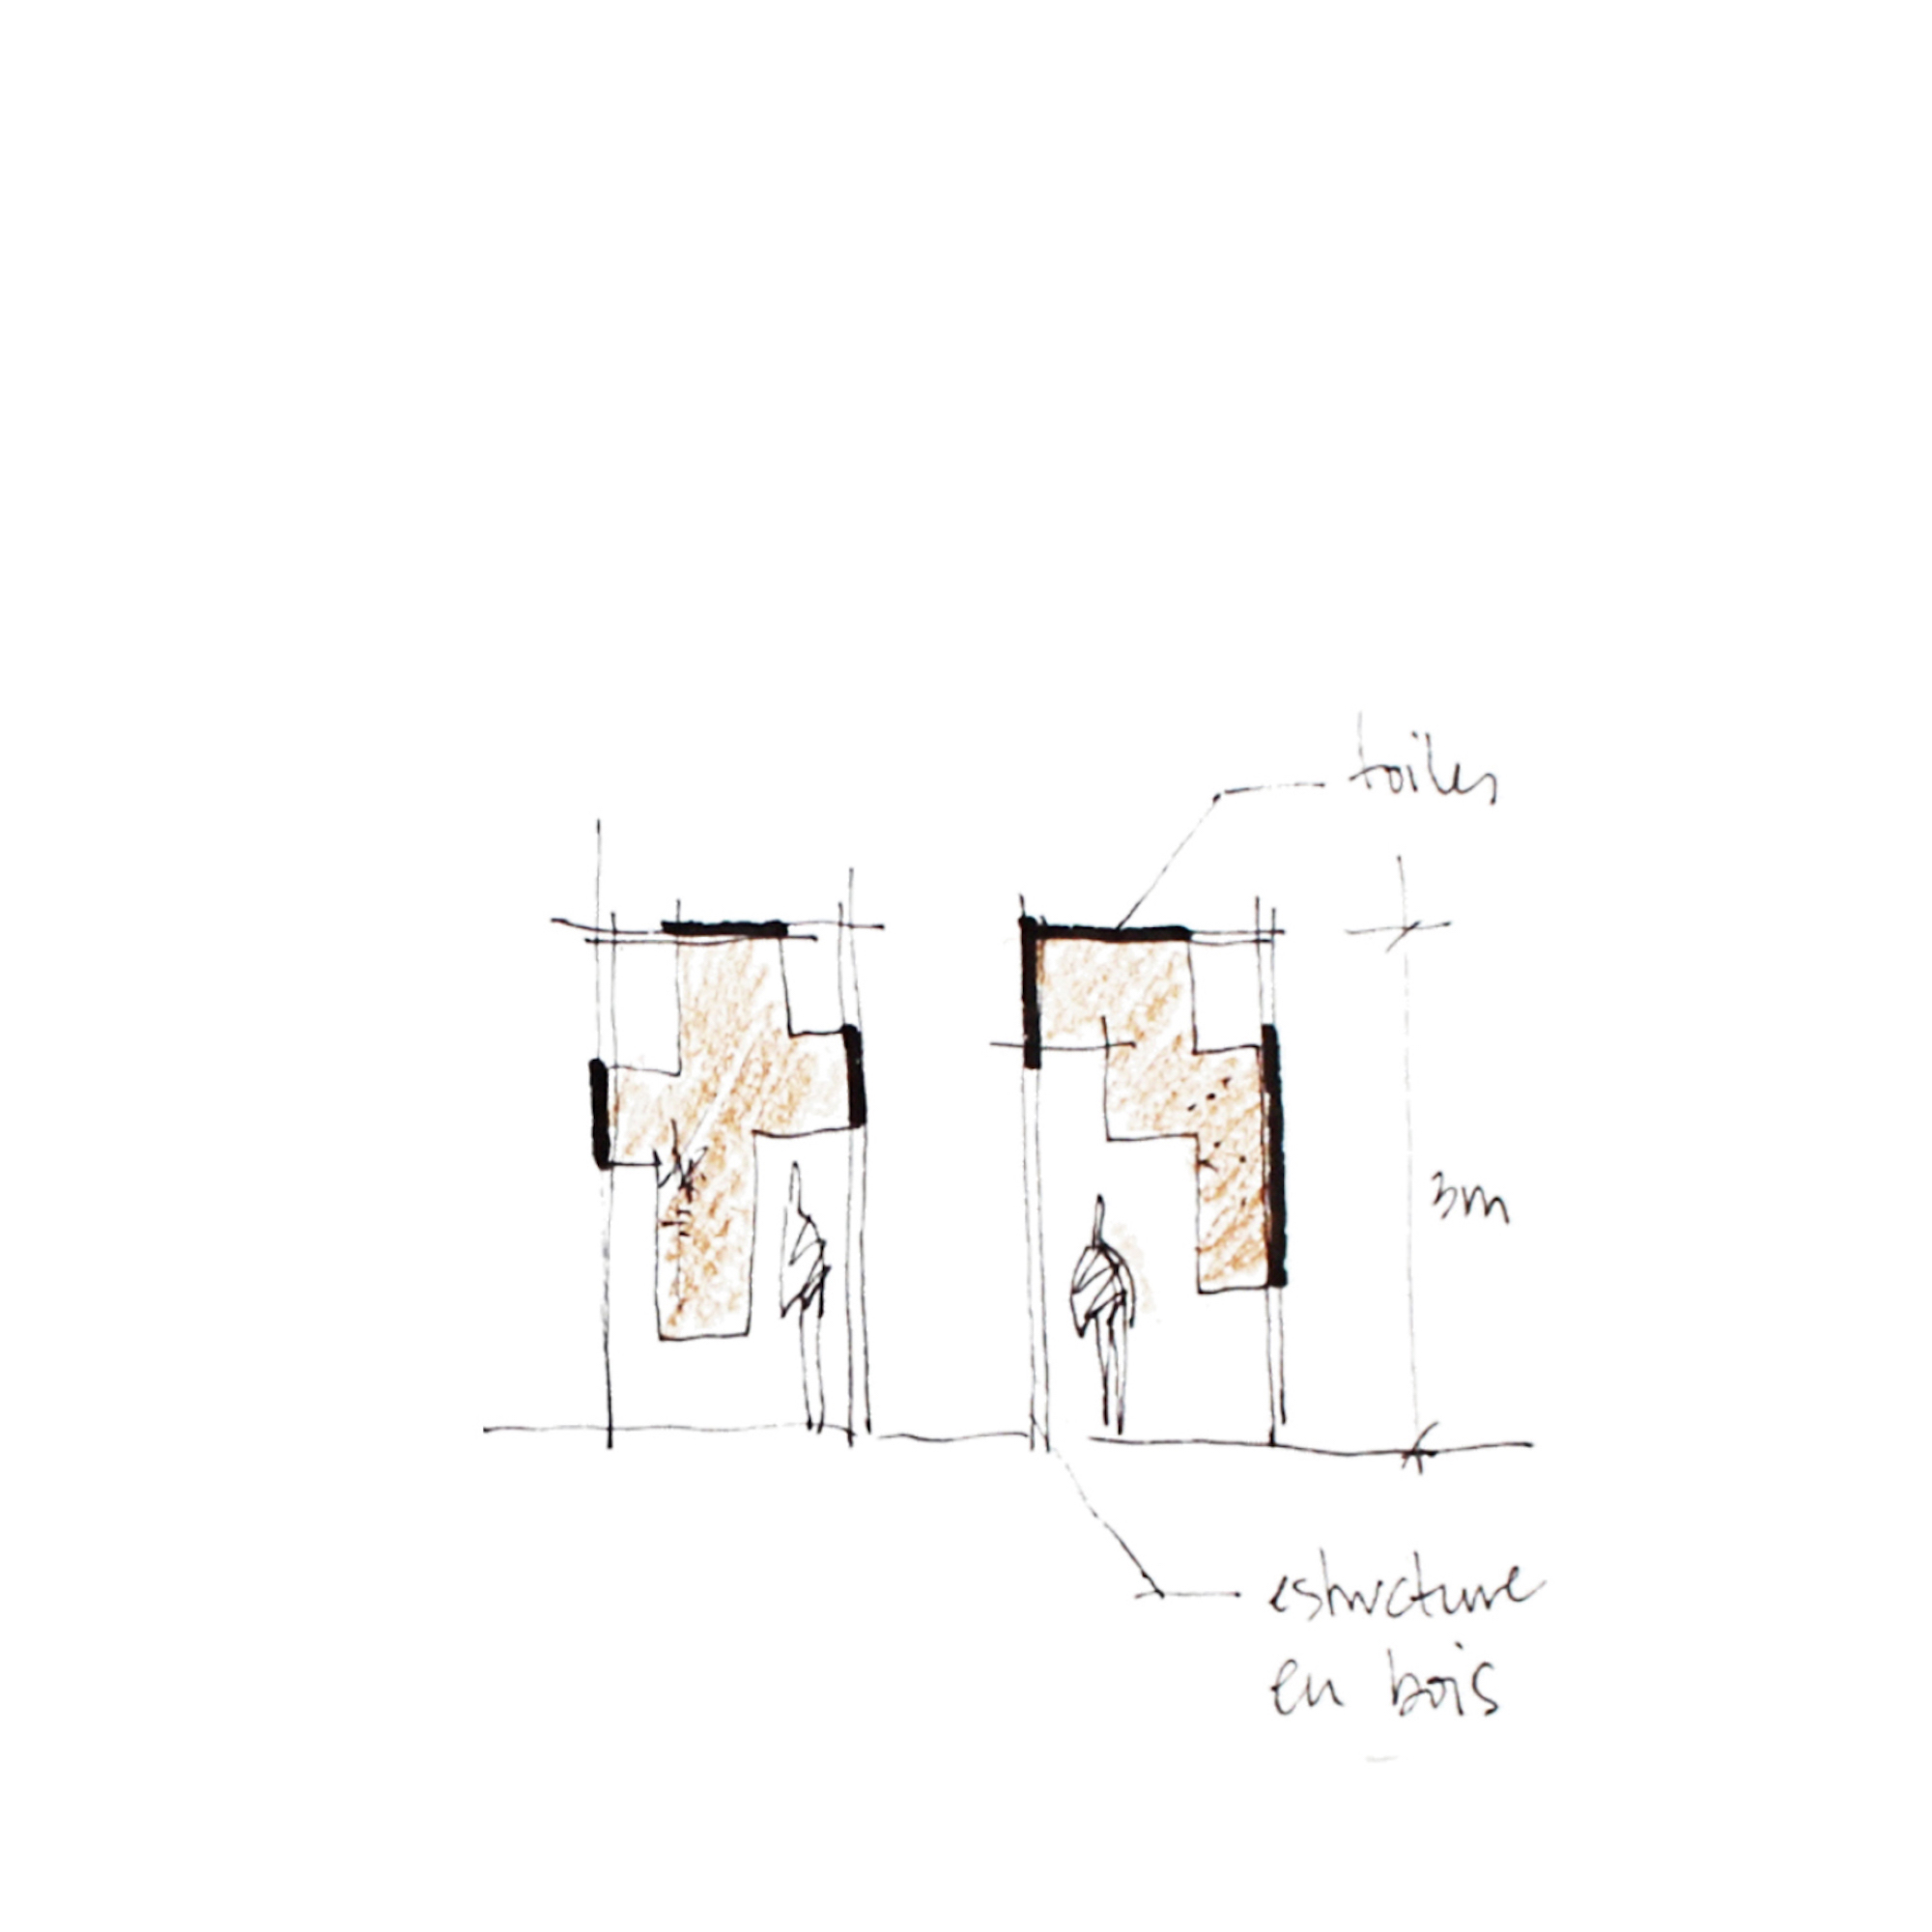 toiles
3m
estructure
en bois